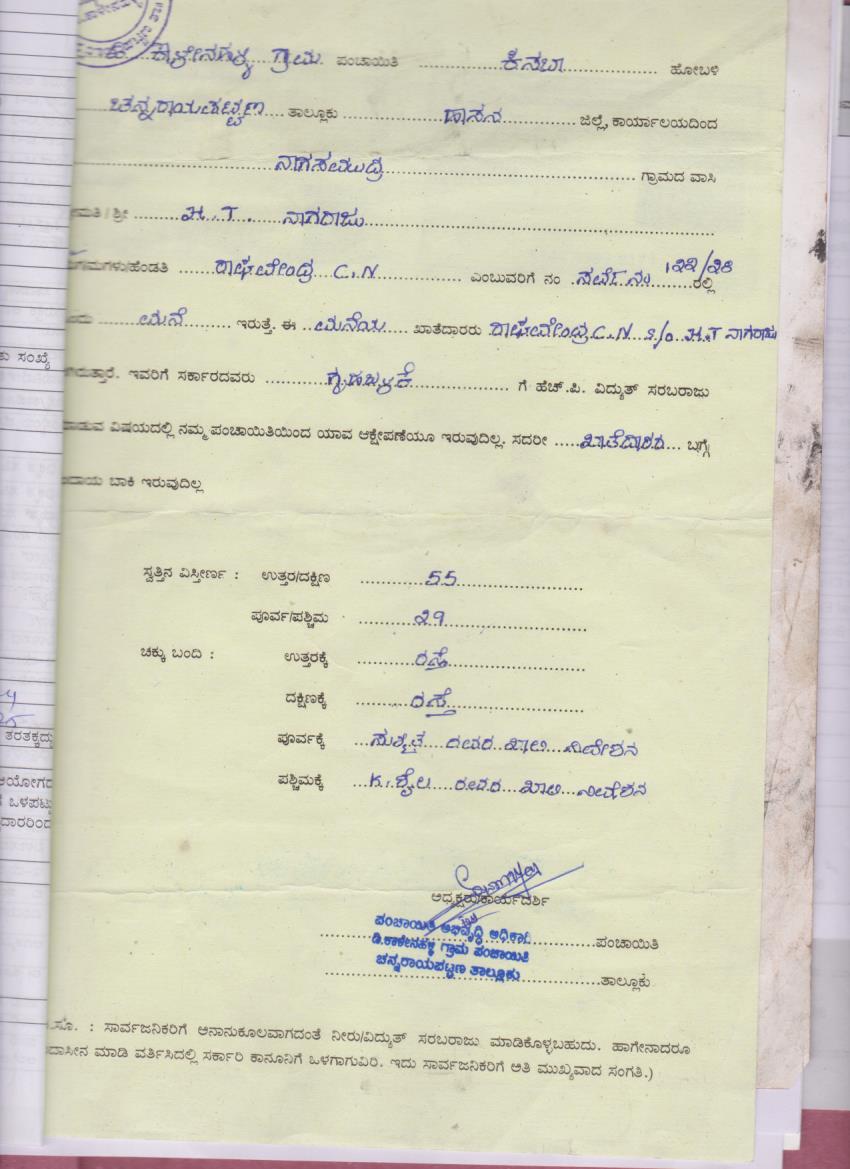 ಗ್ರಾಮ ಪಂಚಾಯಿತಿ ............ ಕಸಬಾ ............ ಹೋಬಳಿ
ಚನ್ನರಾಯಪಟ್ಟಣ .... ತಾಲ್ಲೂಕು ............ ಹಾಸನ ............ ಜಿಲ್ಲೆ, ಕಾರ್ಯಾಲಯದಿಂದ
ನಾಗಸಮುದ್ರ ............ ಗ್ರಾಮದ ವಾಸಿ
ಶ್ರೀ ........ H.T. ನಾಗರಾಜು
ಹೆಂಡತಿ ...... ರಾಘವೇಂದ್ರ C.N ............ ಎಂಬುವರಿಗೆ ನಂ .ಸರ್ವೆ ನಂ ೧೨೩/೨೮ ರಲ್ಲಿ
........ ಮನೆ ........ ಇರುತ್ತೆ. ಈ ... ಮನೆಯ .... ಖಾತೆದಾರರು ರಾಘವೇಂದ್ರ C.N S/o H.T ನಾಗರಾಜು
ಇವರಿಗೆ ಸರ್ಕಾರದವರು ............ ಗೃಹಬಳಕೆ ............ ಗೆ ಹೆಚ್.ಪಿ. ವಿದ್ಯುತ್ ಸರಬರಾಜು
ಮಾಡುವ ವಿಷಯದಲ್ಲಿ ನಮ್ಮ ಪಂಚಾಯಿತಿಯಿಂದ ಯಾವ ಆಕ್ಷೇಪಣೆಯೂ ಇರುವುದಿಲ್ಲ. ಸದರೀ ..... ಖಾತೆದಾರರ ... ಬಗ್ಗೆ
ಬಾಕಿ ಇರುವುದಿಲ್ಲ
ಸ್ವತ್ತಿನ ವಿಸ್ತೀರ್ಣ : ಉತ್ತರ/ದಕ್ಷಿಣ ............ 55 ............
ಪೂರ್ವ/ಪಶ್ಚಿಮ ............ 29 ............
ಚಕ್ಕು ಬಂದಿ : ಉತ್ತರಕ್ಕೆ ............ ರಸ್ತೆ ............
ದಕ್ಷಿಣಕ್ಕೆ ............ ರಸ್ತೆ ............
ಪೂರ್ವಕ್ಕೆ ... ರವರ ಖಾಲಿ ನಿವೇಶನ
ಪಶ್ಚಿಮಕ್ಕೆ ... K. ಶೈಲ ರವರ ಖಾಲಿ ನಿವೇಶನ
ಅಧ್ಯಕ್ಷರು/ಕಾರ್ಯದರ್ಶಿ
ಪಂಚಾಯಿತಿ ಅಭಿವೃದ್ಧಿ ಅಧಿಕಾರಿ
............ ಪಂಚಾಯಿತಿ
ಡಿ.ಕಾಳೇನಹಳ್ಳಿ ಗ್ರಾಮ ಪಂಚಾಯಿತಿ
ಚನ್ನರಾಯಪಟ್ಟಣ ತಾಲ್ಲೂಕು
............ ತಾಲ್ಲೂಕು
.ಸೂ. : ಸಾರ್ವಜನಿಕರಿಗೆ ಅನಾನುಕೂಲವಾಗದಂತೆ ನೀರು/ವಿದ್ಯುತ್ ಸರಬರಾಜು ಮಾಡಿಕೊಳ್ಳಬಹುದು. ಹಾಗೇನಾದರೂ
ದಾಸೀನ ಮಾಡಿ ವರ್ತಿಸಿದಲ್ಲಿ ಸರ್ಕಾರಿ ಕಾನೂನಿಗೆ ಒಳಗಾಗುವಿರಿ. ಇದು ಸಾರ್ವಜನಿಕರಿಗೆ ಅತಿ ಮುಖ್ಯವಾದ ಸಂಗತಿ.)